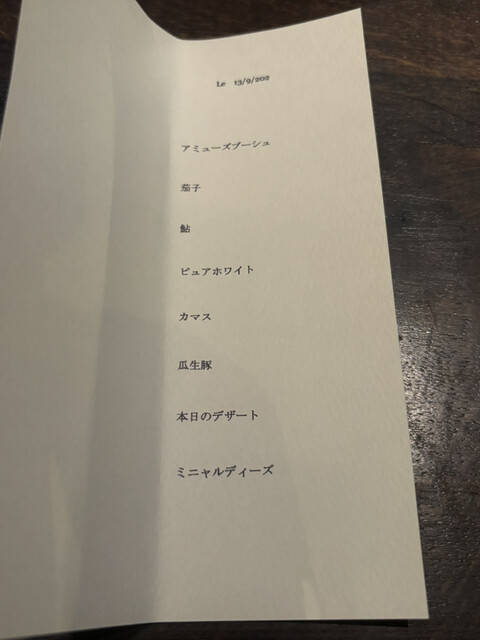 Le 13/9/202
アミューズブーシュ
茄子
鮎
ピュアホワイト
カマス
瓜生豚
本日のデザート
ミニャルディーズ